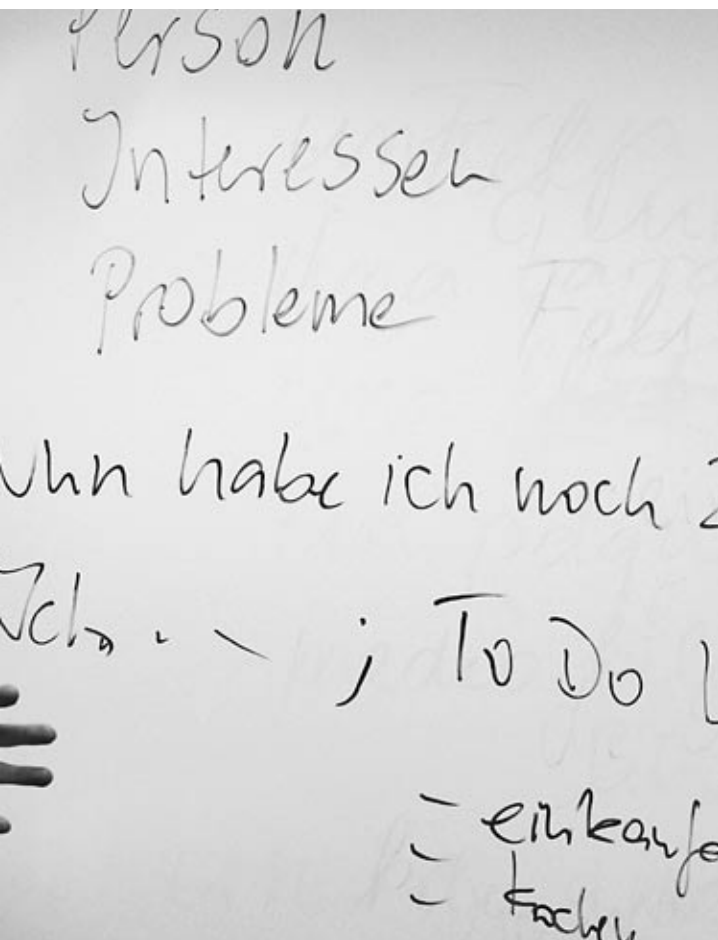 Person
Interessen
Probleme
habe ich noch
Ich... ; To Do
- einkaufe
- kochen